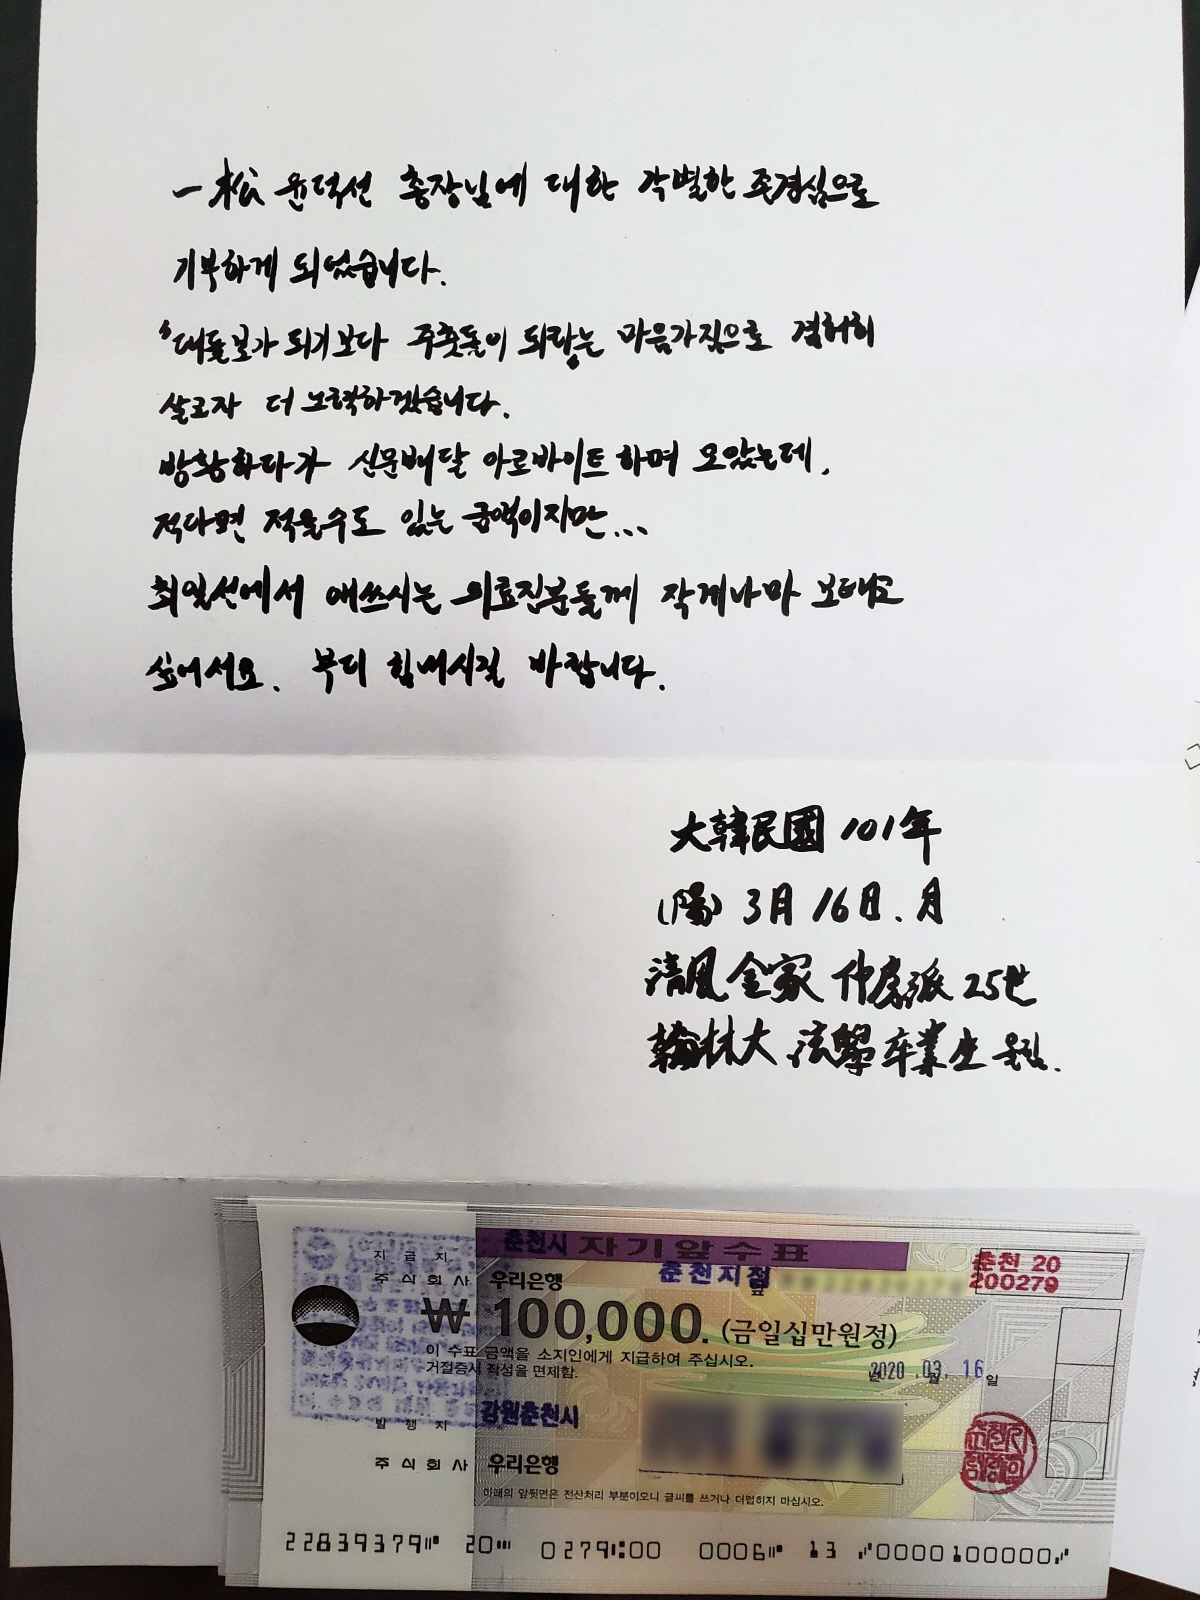 一松 윤덕선 총장님에 대한 각별한 존경심으로
기부하게 되었습니다.
'대들보가 되기보다 주춧돌이 되라'는 마음가짐으로 겸허히
살고자 더 노력하겠습니다.
방황하다가 신문배달 아르바이트하며 모았는데,
적다면 적을수도 있는 금액이지만...
최일선에서 애쓰시는 의료진분들께 작게나마 보태고
싶어서요. 부디 힘내시길 바랍니다.
大韓民國 101年
(陽) 3月 16日. 月
淸風金家 仲房派 25世
翰林大 法學 卒業生 올림.
춘천시 자기앞수표
지급지
주식회사 우리은행 춘천지점 앞
춘천 20
200279
₩ 100,000. (금일십만원정)
이 수표 금액을 소지인에게 지급하여 주십시오.
거절증서 작성을 면제함.
2020 년 03 월 16 일
발행지 강원춘천시
주식회사 우리은행
아래의 앞뒷면은 전산처리 부분이오니 글씨를 쓰거나 더럽히지 마십시오.
22839379 20 0279 00 0006 13 0000100000